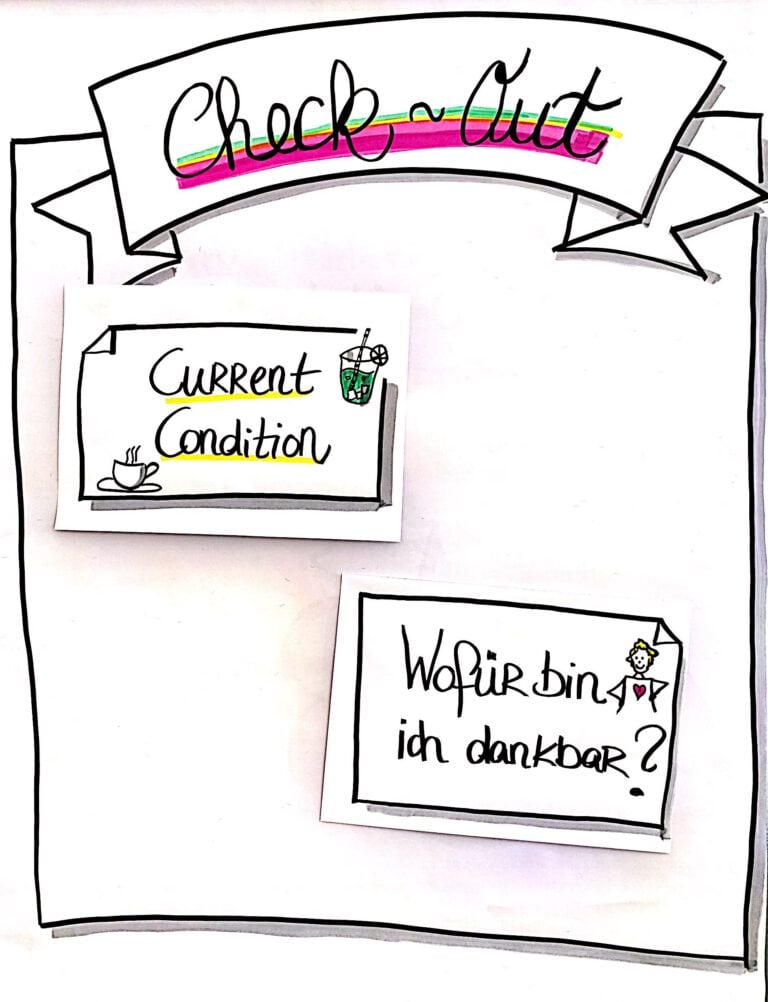 Check ~ Out
Current
Condition
Wofür bin
ich dankbar?